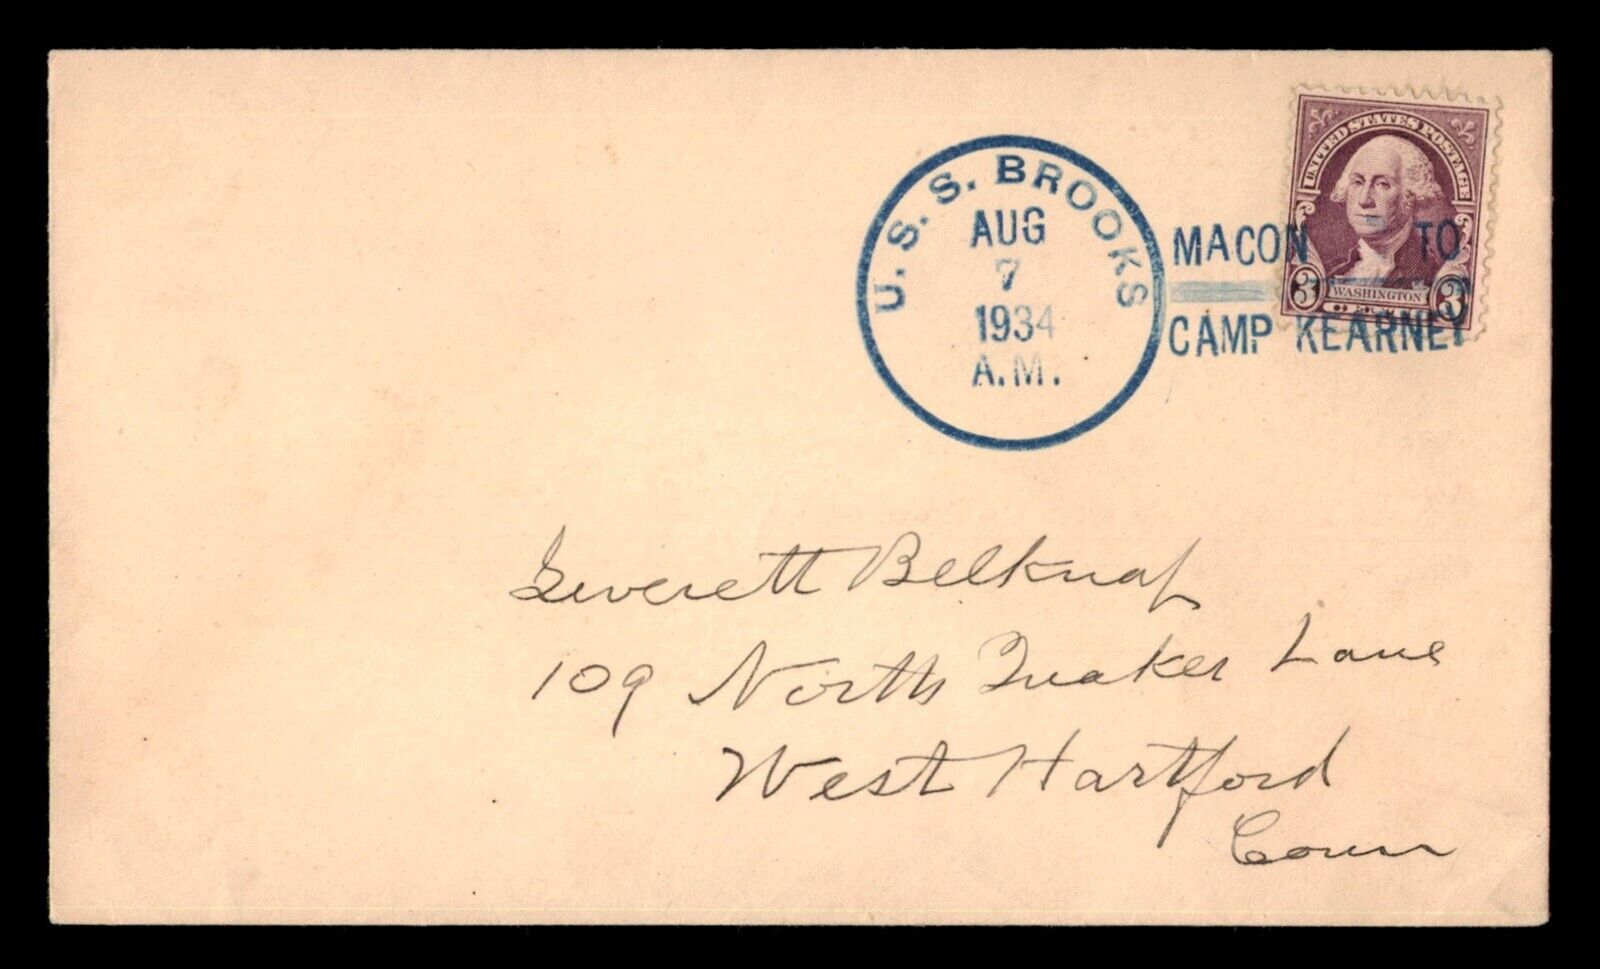 U. S. S. BROOKS
AUG
7
1934
A.M.
MACON TO
CAMP KEARNEY
UNITED STATES POSTAGE
3 WASHINGTON 3
Everett Belknap
109 North Quaker Lane
West Hartford
Conn